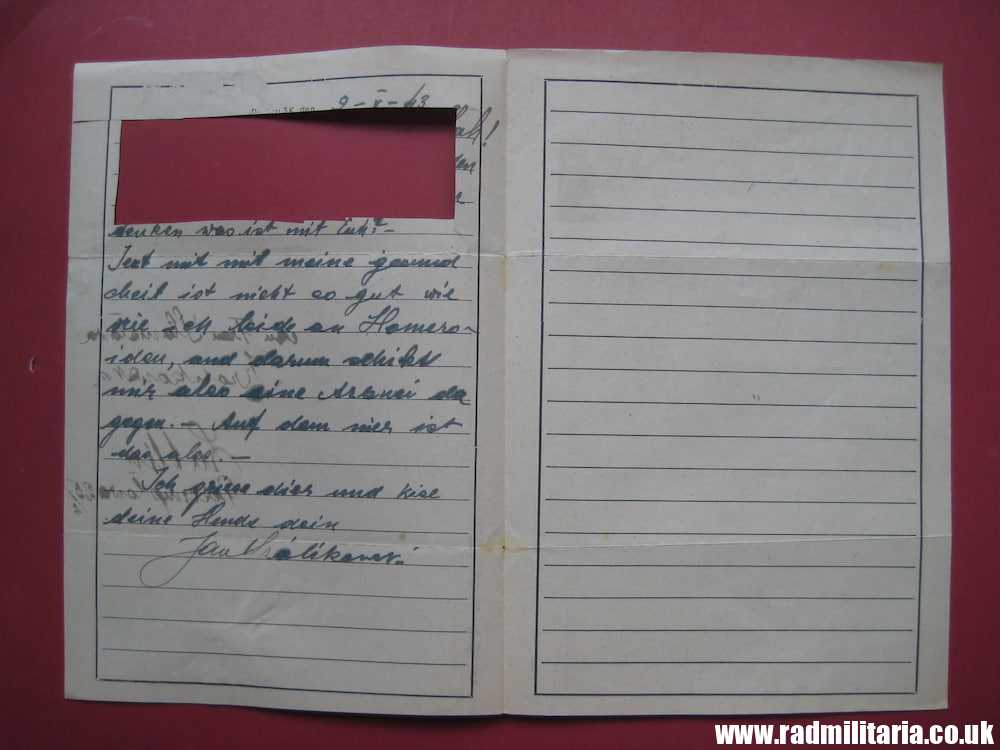 9-X-43
den
denken was ist mit Euh?-
Jezt mit mil meine gesund
cheil ist nicht so gut wie
nie ich leide an Homero-
iden, and darum schikt
mir also eine Arznei da
gegen. - Auf dem mier ist
das alss. -
Ich griese dier und kise
deine Hende dein
Jan Królikowski
www.radmilitaria.co.uk